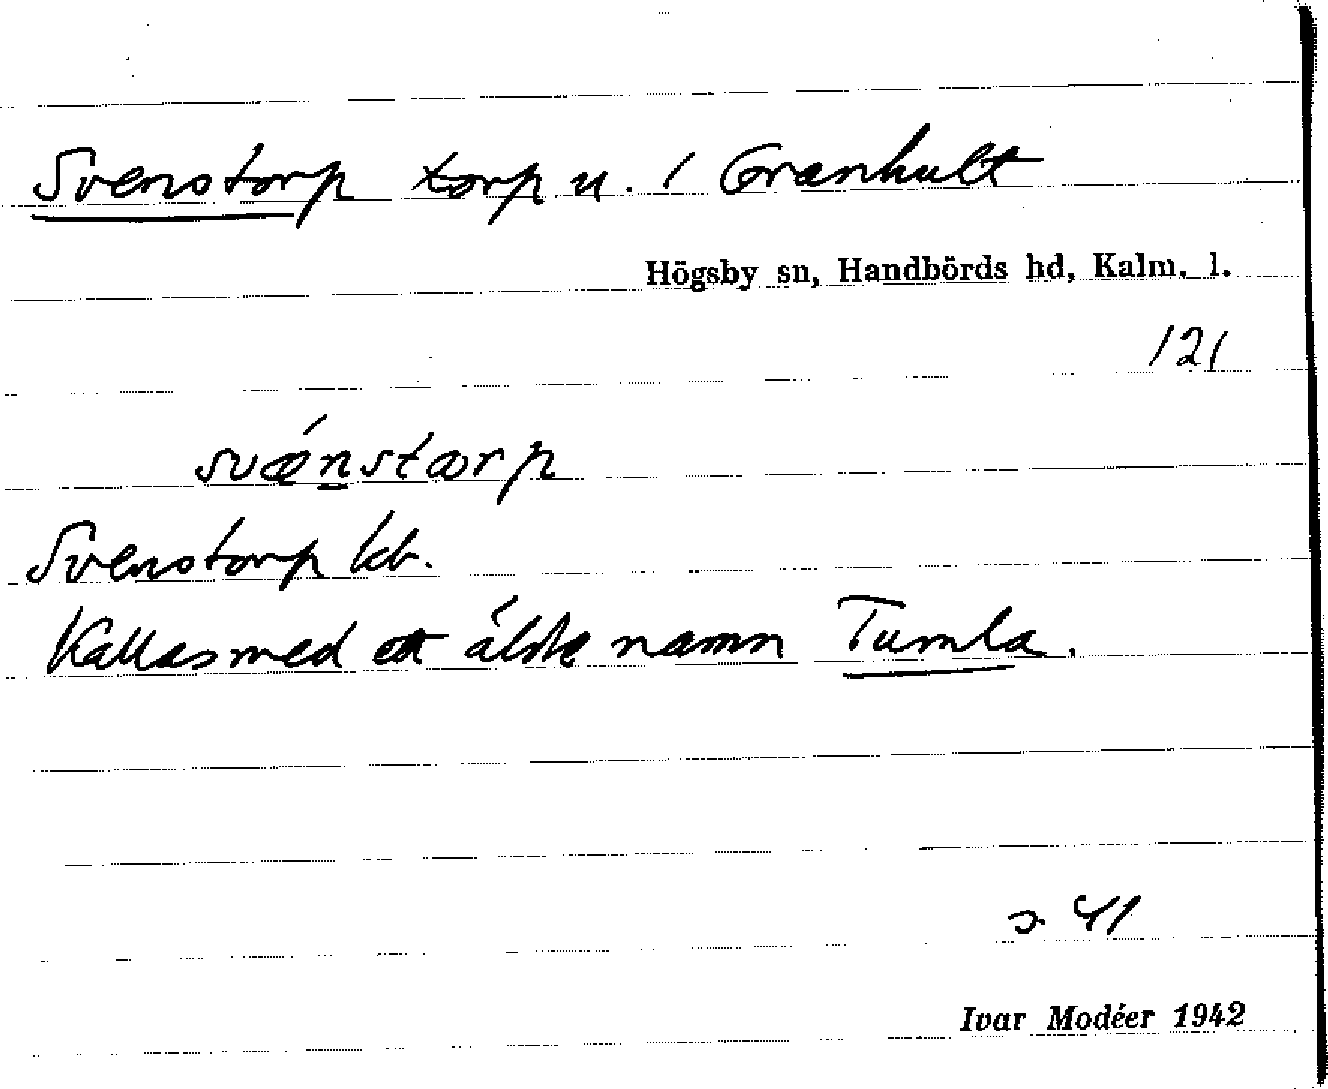 Svenstorp torp u. 1 Granhult
Högsby sn, Handbörds hd, Kalm. l.
121
svǽnstærp
Svenstorp kb.
Kallas med ett äldre namn Tumla.
41
Ivar Modéer 1942